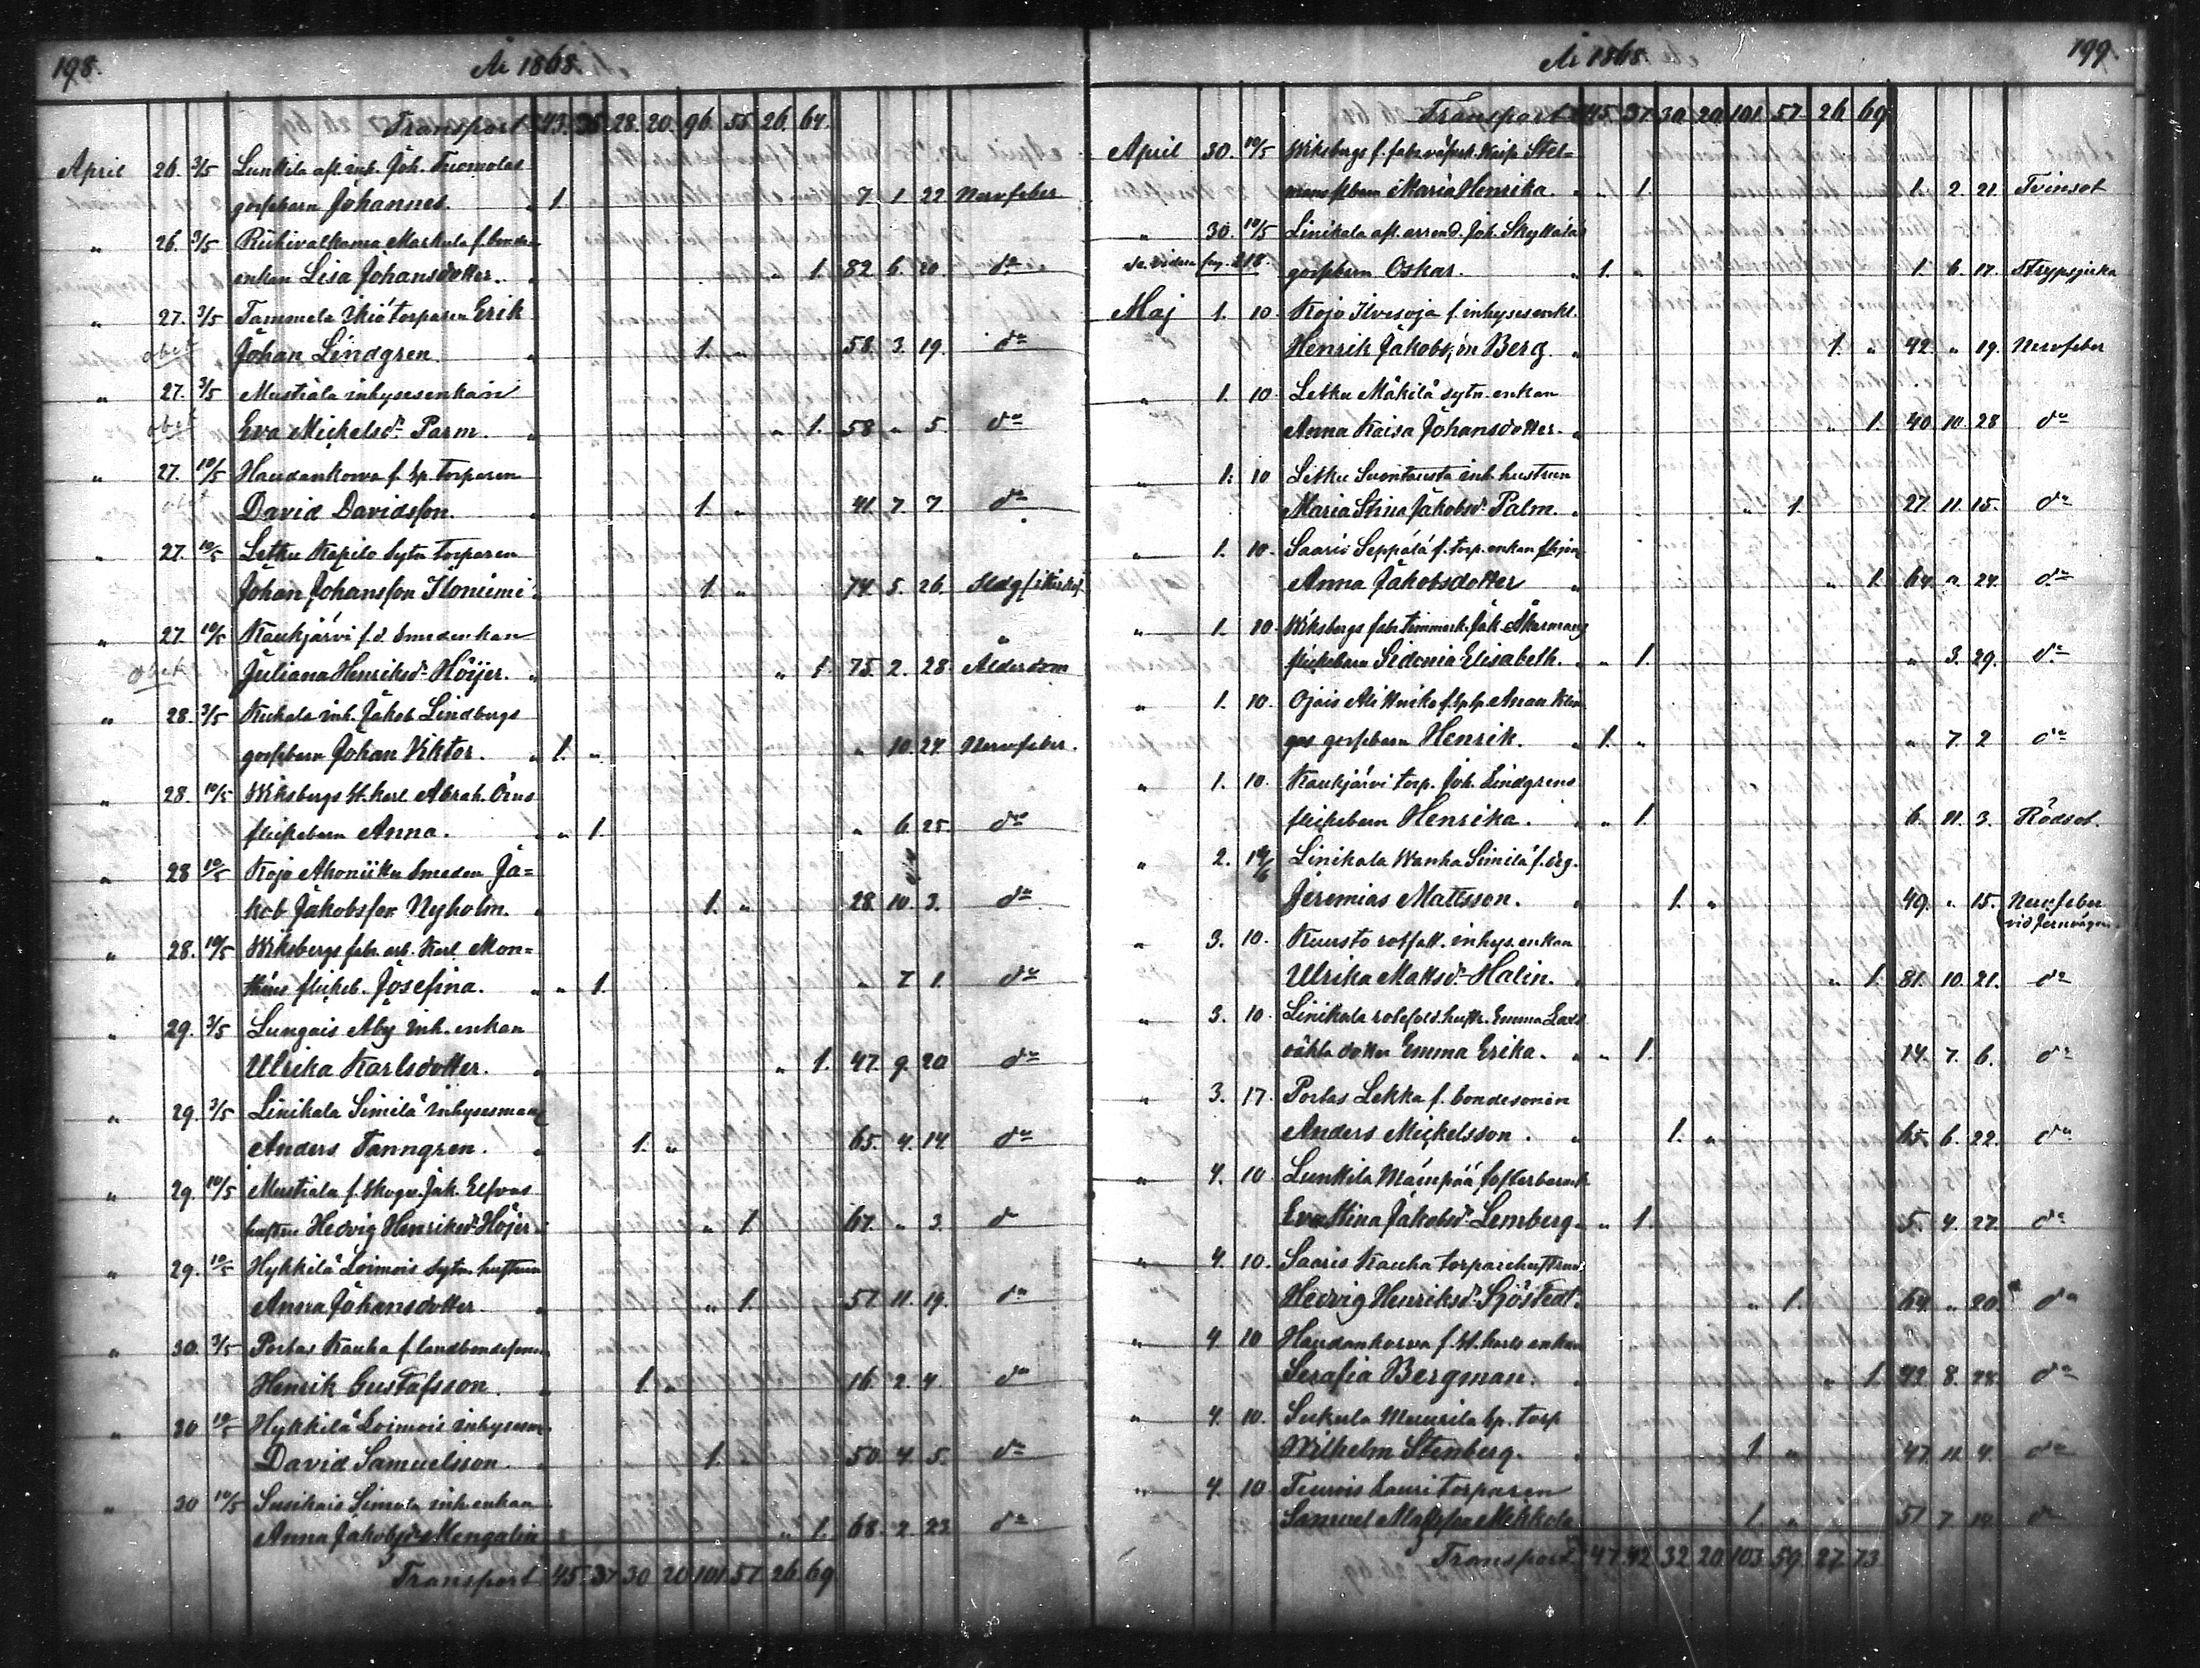 198. År 1868.
Transport 43. 35. 28. 20. 96. 55. 26. 64.
April 26. 3/5 Lunkila aft. inh. Joh. Tuomolas
gossebarn Johannes. " 1. 7 1 22 Nervfeber
" 26. 3/5 Riihivalkama Markula f. bonde-
enkan Lisa Johansdotter. " 1. 82 6. 20 do
" 27. 3/5 Tammela torparen Erik
obet Johan Lindgren. 1. " 58. 3. 19. do
" 27. 3/5 Mustiala inhysesenkan
obet Eva Mickelsdr Parm. " 1. 58 " 5. do
" 27. 10/5 Haudankorva f. sp. torparen
obet David Davidsson. 1. " 41. 7. 7. do
" 27. 10/5 Letku Kepilo sytn. torparen
Johan Johansson Iloniemi 1. " 74. 5. 26.
" 27 10/5 Kaukjärvi f.d. smedenkan
obet Juliana Henriksdr Höijer. " 1. 75. 2. 28 Ålderdom
" 28. 3/5 Kukala inh. Jakob Lindbergs
gossebarn Johan Viktor. " 1. " " 10. 24 Nervfeber.
" 28. 10/5 Wiksbergs st. karl Abrah. Örns
flickebarn Anna. " " 1. " 6. 25 do
" 28 10/5 Kojo Ahoniiku smeden Ja=
kob Jakobsson Nyholm. " 1. " 28. 10. 3. do
" 28. 10/5 Wiksbergs fabr. arb. Karl Mon=
téns flickeb. Josefina. " " 1. " 7 1. do
" 29. 3/5 Lungais Aby inh. enkan
Ulrika Karlsdotter. " " 1. 47. 9. 20 do
" 29. 3/5 Linikala Simila inhysesman
Anders Tanngren. " 1. " 65. 4. 14 do
" 29. 10/5 Mustiala f. skogv. Jak. Elfvas
hustru Hedvig Henriksdr Höjer " 1. 67. " 3. do
" 29. 10/5 Hykkilä Loimois sytn. hustrun
Anna Johansdotter. " " 1. 57. 11. 19. do
" 30. 3/5 Portas Kauha f. landbondesonen
Henrik Gustafsson. " 1. " 16. 2. 4. do
" 30 10/5 Hykkilä Loimois inhysesm.
David Samuelsson. " 1. 50. 4. 5. do
" 30 10/5 Susikais Simula inh. enkan
Anna Jakobsdr Mengalin " 1. 68. 2. 23. do
Transport 45. 37 30 20 101. 57. 26. 69.
År 1868. 199.
Transport 45. 37. 30. 20. 101. 57. 26 69
April 30. 10/5 Wiksbergs f. fabr. Stel=
mans flickebarn Maria Henrika. " " 1. 1. 2. 21. Tvinsot
" 30. 10/5 Linikala aft. arrend. Joh. Skyttäläs
Se vidare pag. 218. gossebarn Oskar. " 1. " 1. 6. 17. Strypsjuka
Maj 1. 10. Kojo Ilvesoja f. inhysesenkl.
Henrik Jakobsson Berg. " 1. " 42. " 19. Nervfeber
" 1. 10. Letku Mäkilä sytn. enkan
Anna Kaisa Johansdotter. " " 1. 40. 10. 28 do
" 1. 10 Letku Suontausta inh. hustrun
Maria Stina Jakobsdr Palm. " " 1. 27 11. 15. do
" 1. 10. Saaris Seppälä f. torp. enkan
Anna Jakobsdotter " " 1. 64 " 24. do
" 1. 10. Wiksbergs fabr. timmerk. Jak. Åkermans
flickebarn Sidonia Elisabeth. " " 1. " 3. 29. do
" 1. 10. Ojais f. sp. p. Annan
gossebarn Henrik. " 1. " " 7. 2 do
" 1. 10. Kaukjärvi torp. Joh. Lindgrens
flickebarn Henrika. " " 1. 6. 11. 3. Rödsot.
" 2. Linikala Wanha Similä f. drg.
Jeremias Mattsson. " 1. " 49. " 15. Nervfeber
vid Jernvägen.
" 3. 10. Kuusto rotfatt. inhys. enkan
Ulrika Mattsdr Halin. " 1. 81. 10. 21. do
" 3. 10. Linikala rotefatt. hustr. Emma
oäkta dotter Emma Erika. " " 1. 14. 7. 6. do
" 3. 17. Portas Lekka f. bondesonen
Anders Mickelsson. " 1. " 65. 6. 22. do
" 4. 10. Lunkila Mäinpää fosterbarnet
Eva Stina Jakobsdr Lemberg. " 1. 5. 4. 27. do
" 4. 10. Saaris Kauha torparehustrun
Hedvig Henriksdr Sjöstedt. " 1. 64. " 20. do
" 4 10 Haudankorva f. st. karls enkan
Serafia Bergman. " 1. 42. 8. 28. do
" 4. 10. Sukula Muurila sp. torp
Wilhelm Stenberg. 1. " 47. 11. 4. do
" 4. 10 Teurois Lauri torparen
Samuel Matsson Mikkola 1. " 57 7 do
Transport 47. 42 32 20 103 59. 27. 73